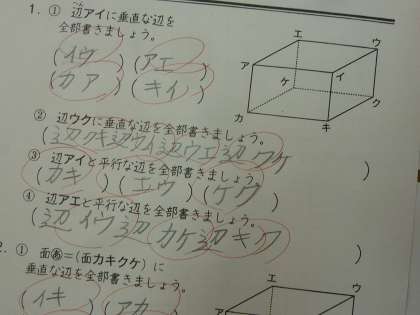 1. ① 辺アイに垂直な辺を
全部書きましょう。
(イウ) (アエ)
(カア) (キイ)
エ
ウ
ア
イ
ケ
カ
キ
ク
② 辺ウクに垂直な辺を全部書きましょう。
(辺クキ辺ウイ辺ウエ辺クケ)
③ 辺アイと平行な辺を全部書きましょう。
(カキ) (エウ) (ケク)
④ 辺アエと平行な辺を全部書きましょう。
(辺イウ辺カケ辺キク)
2. ① 面あ=(面カキクケ) に
垂直な辺を全部書きましょう。
(イキ) (アカ)
エ
ウ
ア